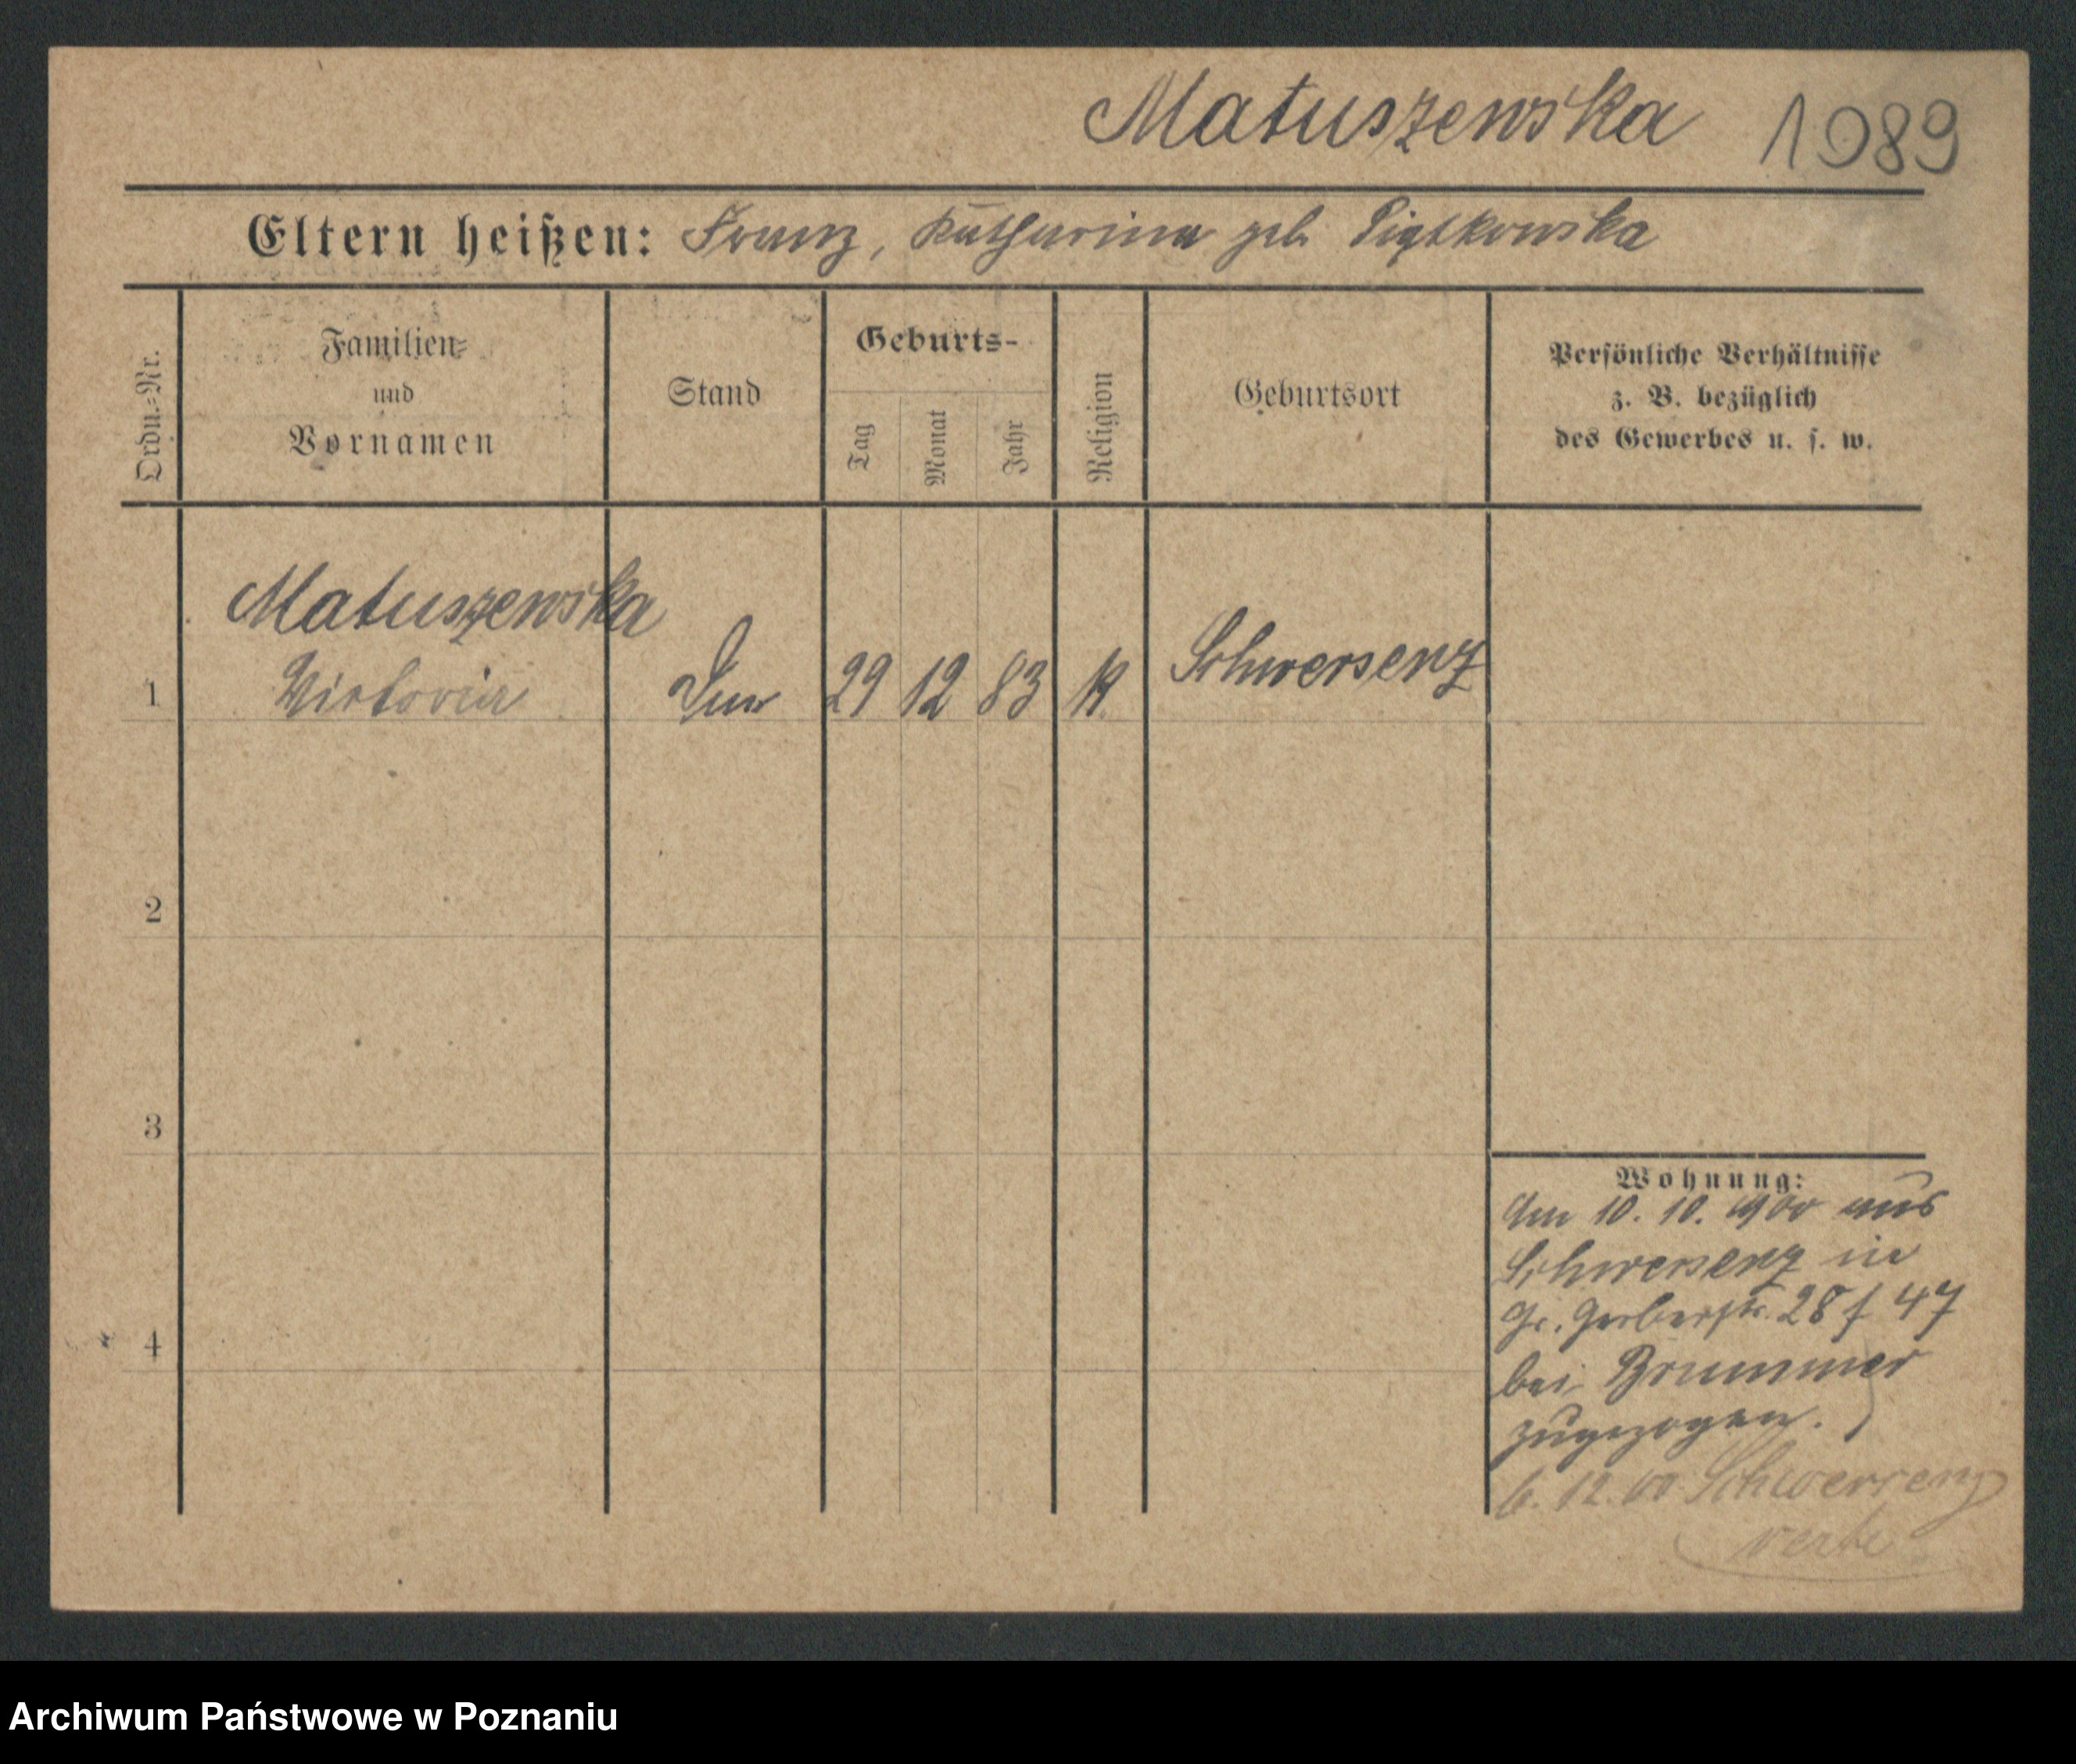 Matuszewska 1989
Eltern heißen: Franz, Katharina geb. Piątkowska
Ordn.-Nr.
Familien-
und
Vornamen
Stand
Geburts-
Tag
Monat
Jahr
Religion
Geburtsort
Persönliche Verhältnisse
z. B. bezüglich
des Gewerbes u. s. w.
Matuszewska
1 Victoria 29 12 83 K. Schwersenz
2
3
4
Wohnung:
Am 10. 10. 1900 aus
Schwersenz in
Gr. Gerberstr. 28 f 47
bei Brummer
zugezogen.
6. 12. 00 Schwersenz
verte
Archiwum Państwowe w Poznaniu